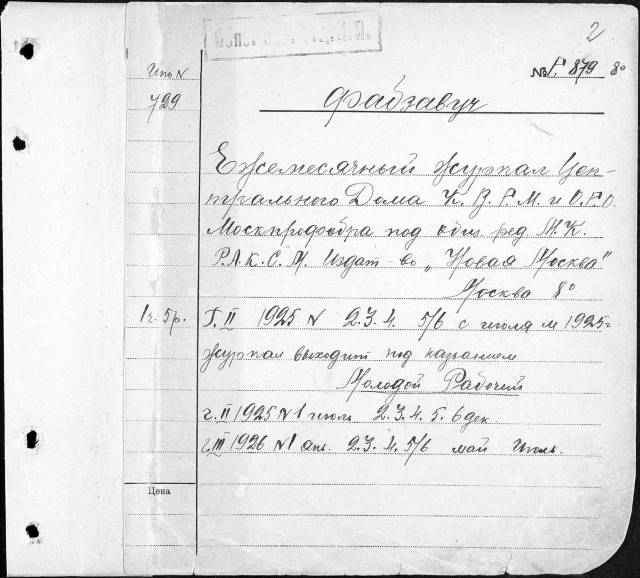 2
№ Р. 879 8°
Инв N
729
Фабзавуч
Ежемесячный журнал Цен-
трального Дома К. П. Р. М. и О. Р. О.
Моспрофобра под общ. ред М. К.
Р. Л. К. С. М. Издат-во „Новая Москва"
Москва 8°
1 г. 5 р.
Г. II 1925 N 2. 3. 4. 5/6 с июля м 1925 г
журнал выходит под названием
Молодой Рабочий
г. II 1925 N 1 июль 2. 3. 4. 5. 6 дек.
г. III 1926 N 1 янв. 2. 3. 4. 5/6 май Июль.
Цена